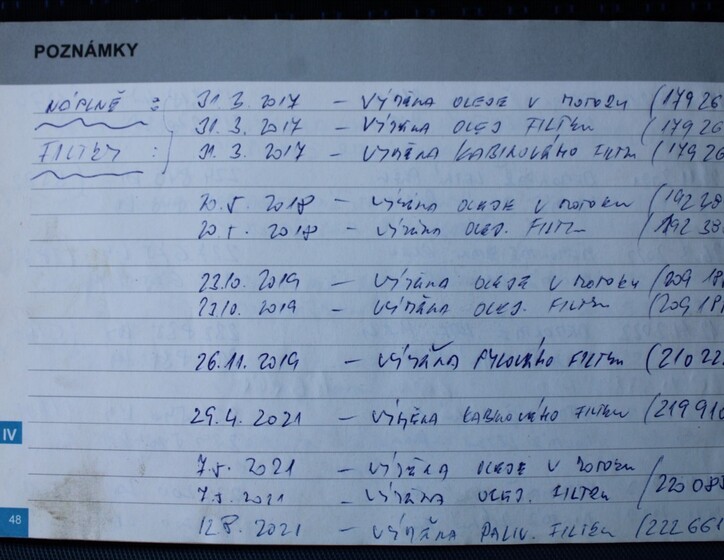 POZNÁMKY
NÁPLNĚ : 31.3. 2017 – VÝMĚNA OLEJE V MOTORU (179 26
31.3. 2017 – VÝMĚNA OLEJ FILTRU (179 26
FILTRY : 31.3. 2017 – VÝMĚNA KABINOVÉHO FILTRU (179 26
20.5. 2018 – VÝMĚNA OLEJE V MOTORU (192 38
20.5. 2018 – VÝMĚNA OLEJ. FILTRU (192 38
23.10. 2019 – VÝMĚNA OLEJE V MOTORU (209 18
23.10. 2019 – VÝMĚNA OLEJ. FILTRU (209 18
26.11. 2019 – VÝMĚNA PYLOVÉHO FILTRU (210 22
29.4. 2021 – VÝMĚNA KABINOVÉHO FILTRU (219 910
7.5. 2021 – VÝMĚNA OLEJE V MOTORU
7.5. 2021 – VÝMĚNA OLEJ. FILTRU (220 083
12.8. 2021 – VÝMĚNA PALIV. FILTRU (222 661
IV
48